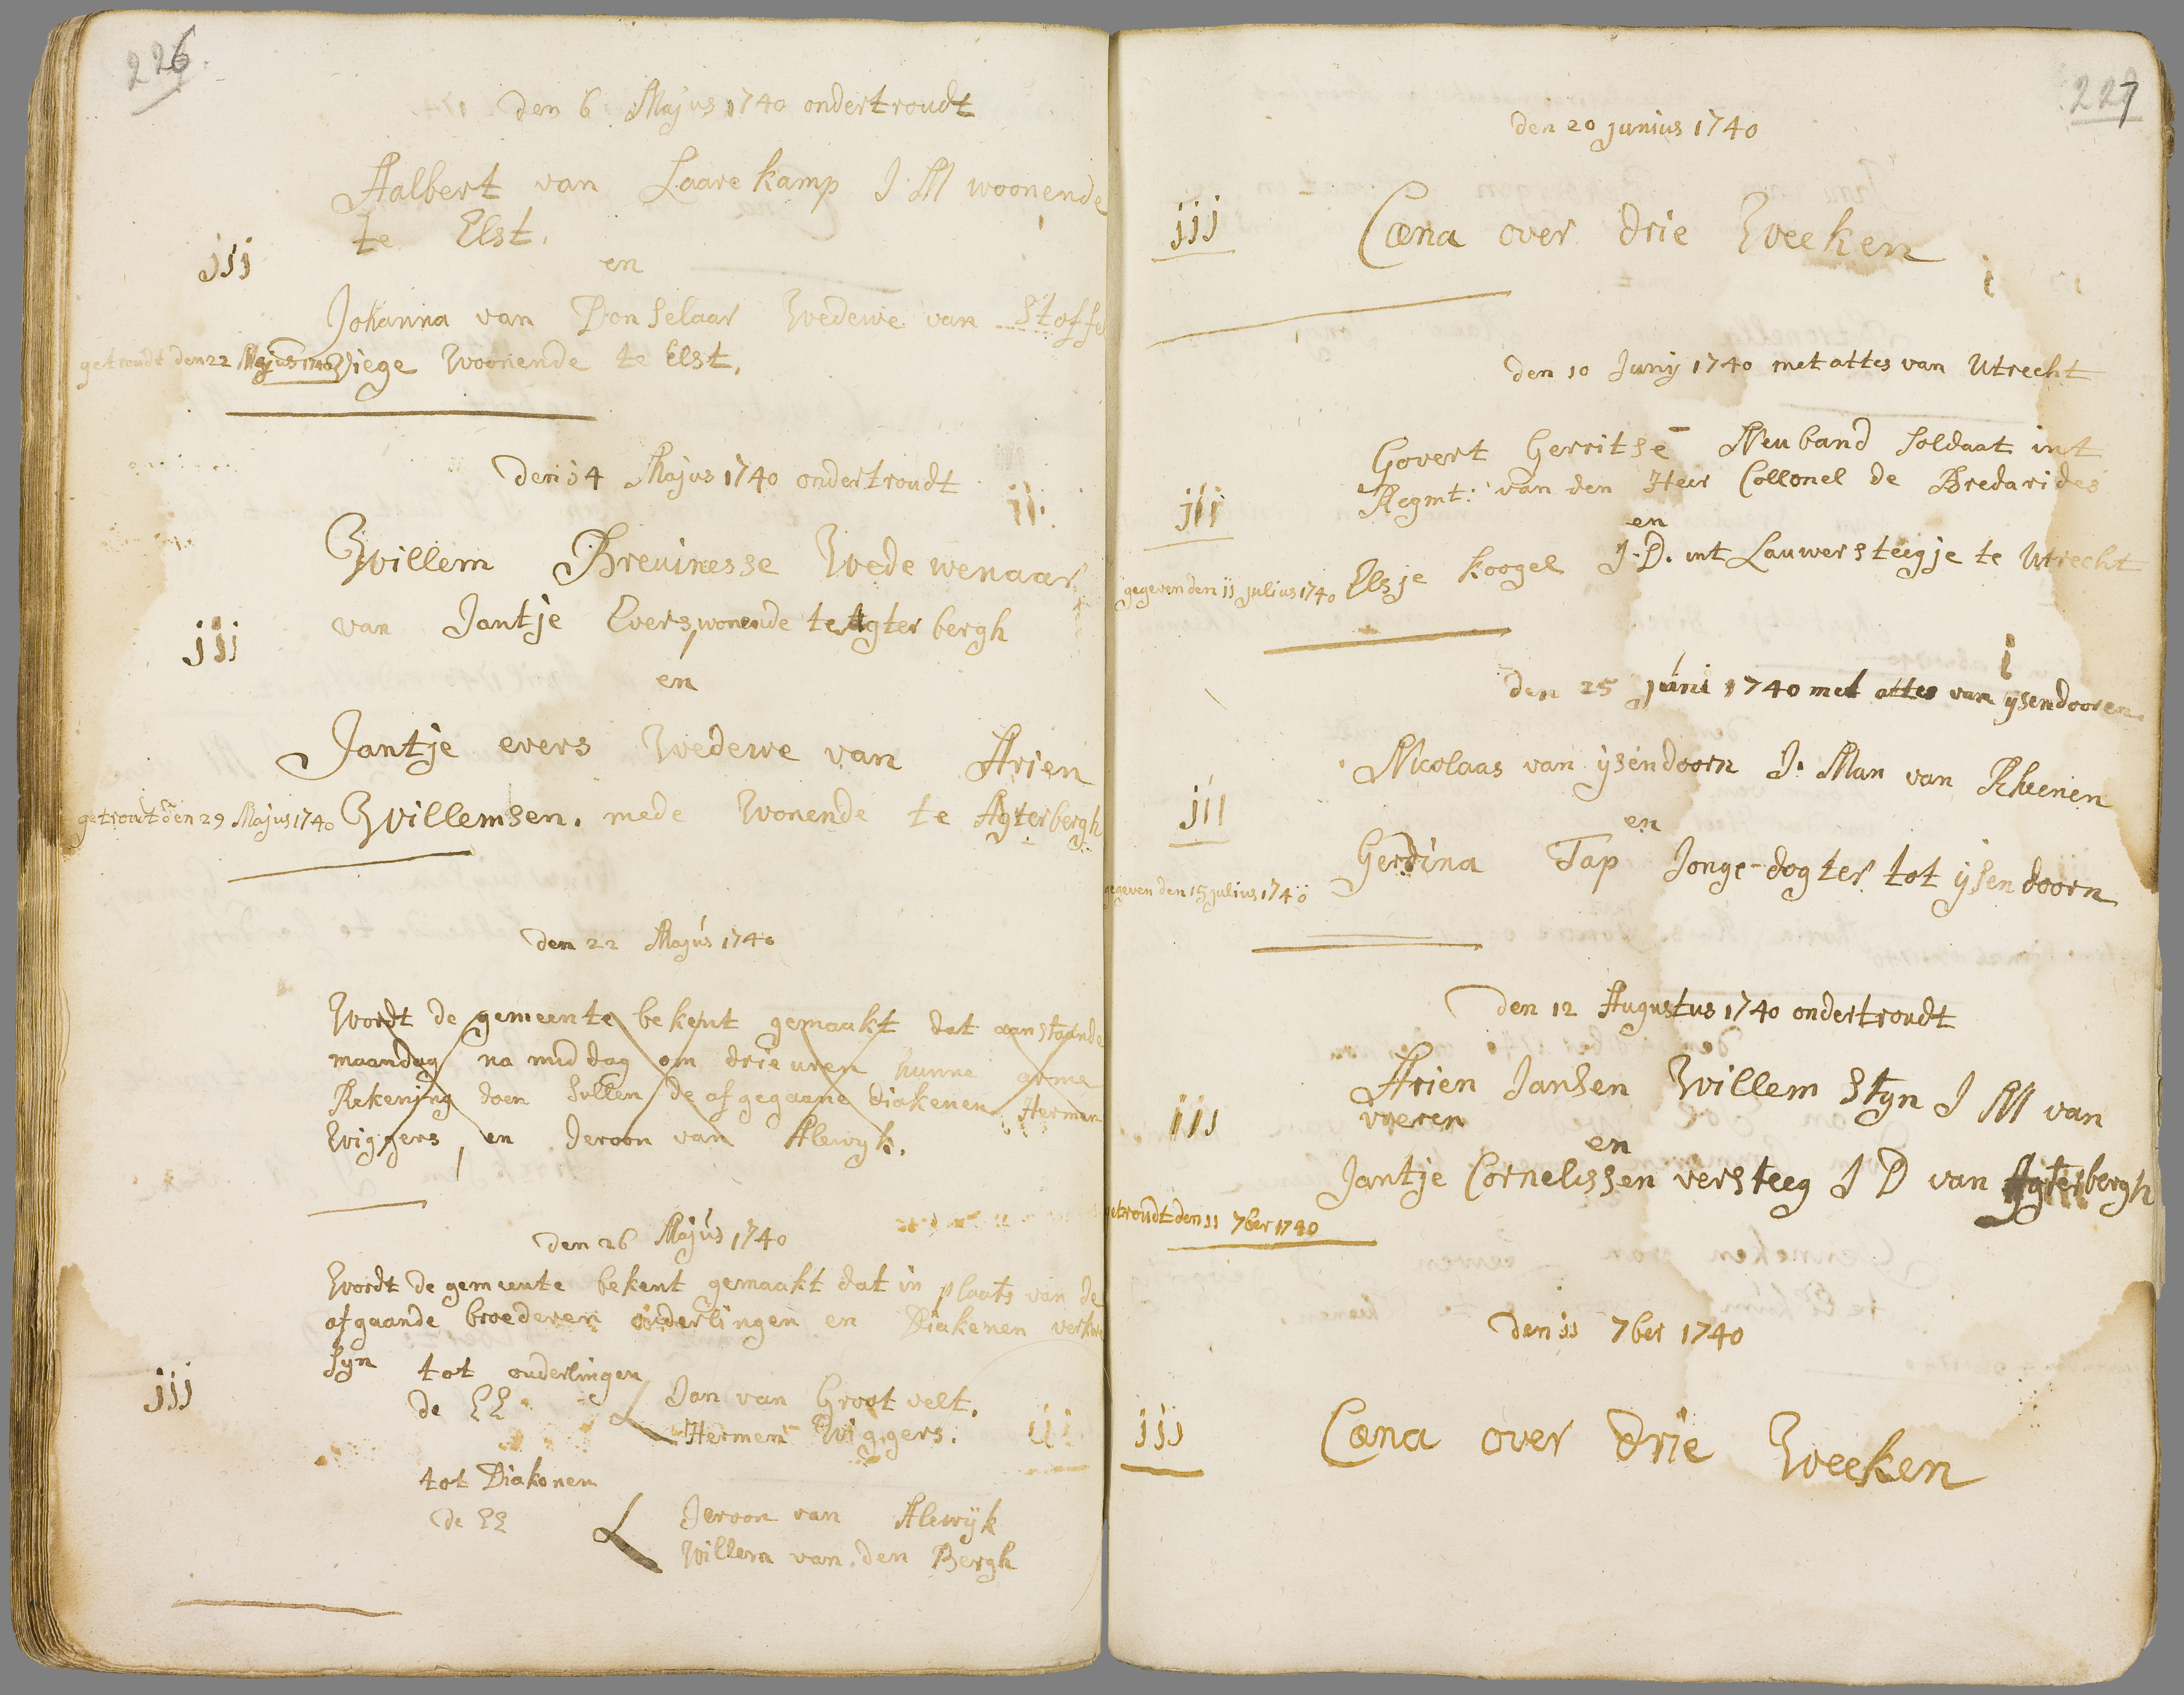 226
den 6 Majus 1740 ondertroudt
Aalbert van Laarekamp J. M woonende
te Elst.
en
jjj
Johanna van Donselaar Wedewe van Stoffe
getroudt den 22 Majus 1740 Wiege Woonende te Elst.
den 14 Majus 1740 ondertroudt
Willem Brevinesse Wedewenaar
van Jantje Evers, wonende te Agterbergh
jjj
en
Jantje evers Wedewe van Arien
getroudt den 29 Majus 1740 Willemsen. mede Wonende te Agterbergh
den 22 Majus 1740
Wordt de gemeente bekent gemaakt dat aanstaande
maandag na middag om drie uren hunne arme
Rekening doen sullen de afgegaane diakenen Hermen
Wiggers, en Jeroon van Alewyk.
den 26 Majus 1740
Wordt de gemeente bekent gemaakt dat in plaats van de
afgaande broederen ouderlingen en Diakenen
syn tot ouderlingen
jjj
de EE Jan van Grootvelt.
Hermen Wiggers.
tot Diakonen
de EE Jeroon van Alewijk
Willem van den Bergh
227
den 20 junius 1740
jjj
Cœna over drie Weeken
den 10 Junij 1740 met attes van Utrecht
Govert Gerritse Neuband soldaat int
Regmt: van den Heer Collonel de Bredarides
jjj
en
gegeven den 11 julius 1740 Elsje Koogel J. D. int Lauwersteegje te Utrecht
den 25 juni 1740 met attes van ysendooren.
Nicolaas van ysendoorn J. Man van Rheenen
jjj
en
Gerdina Tap Jonge-dogter tot ysendoorn
gegeven den 15 julius 1740
den 12 Augustus 1740 ondertroudt
Arien Jansen Willem Styn J M van
jjj
veren
en
Jantje Cornelissen versteeg J D van Agterbergh
getroudt den 11 7ber 1740
den 11 7ber 1740
jjj
Cœna over drie Weeken